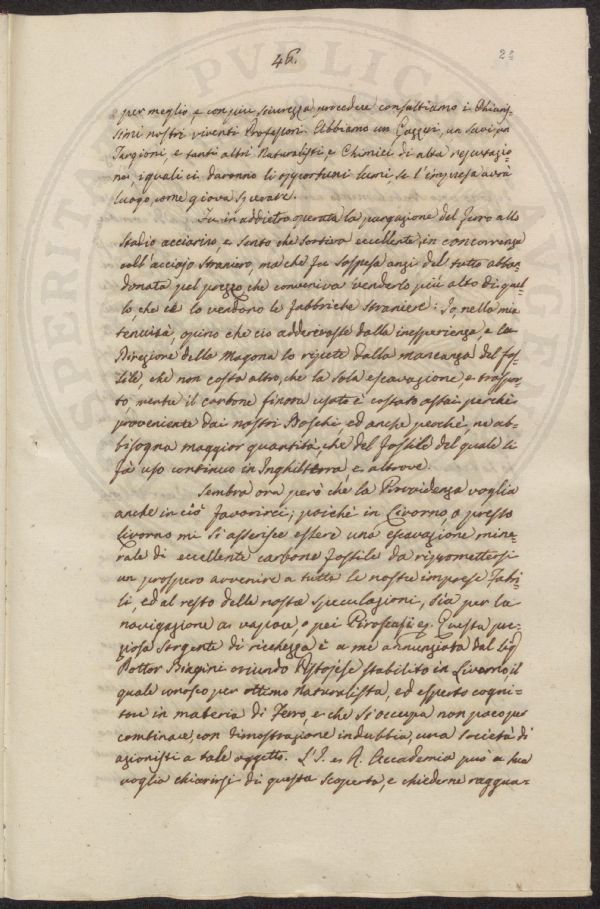 46.
per meglio, e con più sicurezza procedere consultiamo i Chiaris-
simi nostri viventi Professori. Abbiamo un Gazzeri, un
Targioni, e tanti altri Naturalisti, e Chimici di alta reputazio-
ne, i quali ci daranno li opportuni lumi, se l'impresa avrà
luogo, come giova sperare.
Fu in addietro operata la purgazione del ferro allo
stadio acciarino, e sento che sortiva eccellente, in concorrenza
coll'acciajo straniero, ma che fu sospesa anzi del tutto abban-
donata pel prezzo che conveniva venderlo più alto di quel-
lo, che lo vendono le fabbriche straniere: Io, nella mia
tenuità, opino che ciò dalla inesperienza e la
Direzione della Magona lo ripete dalla mancanza del fos-
sile, che non costa altro, che la sola escavazione, e traspor-
to, mentre il carbone finora usato è costato assai perché
proveniente dai nostri Boschi, ed anche perché, ne ab-
bisogna maggior quantità, che del fossile del quale si
fà uso continuo in Inghilterra, e altrove.
Sembra ora però che la Provvidenza voglia
anche in ciò favorirci; poiché in Livorno, o presso
Livorno mi si asserisce essere una escavazione mine-
rale di eccellente carbone fossile da ripromettersi
un prospero avvenire a tutte le nostre imprese fabri-
li, ed al resto delle nostre speculazioni, sia per la
navigazione a vapore, o pei Piroscafi Questa pre-
ziosa sorgente di ricchezza è a me annunziata dal Sig.
Dottor Biagini oriundo Pistojese stabilito in Livorno, il
quale conosco per ottimo Naturalista, ed esperto cogni-
tore in materia di ferro, e che si occupa non poco per
combinare, con dimostrazione indubbia, una società di
azionisti a tale oggetto. L'I. e R. Accademia può a sua
voglia chiarirsi di questa scoperta, e chiederne raggua-